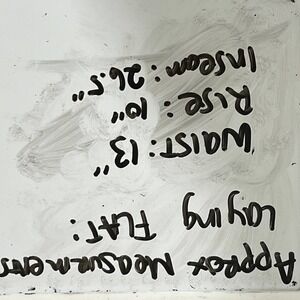 Approx Measurements
Laying FLAT:
WAIST: 13"
RISE: 10"
Inseam: 26.5"